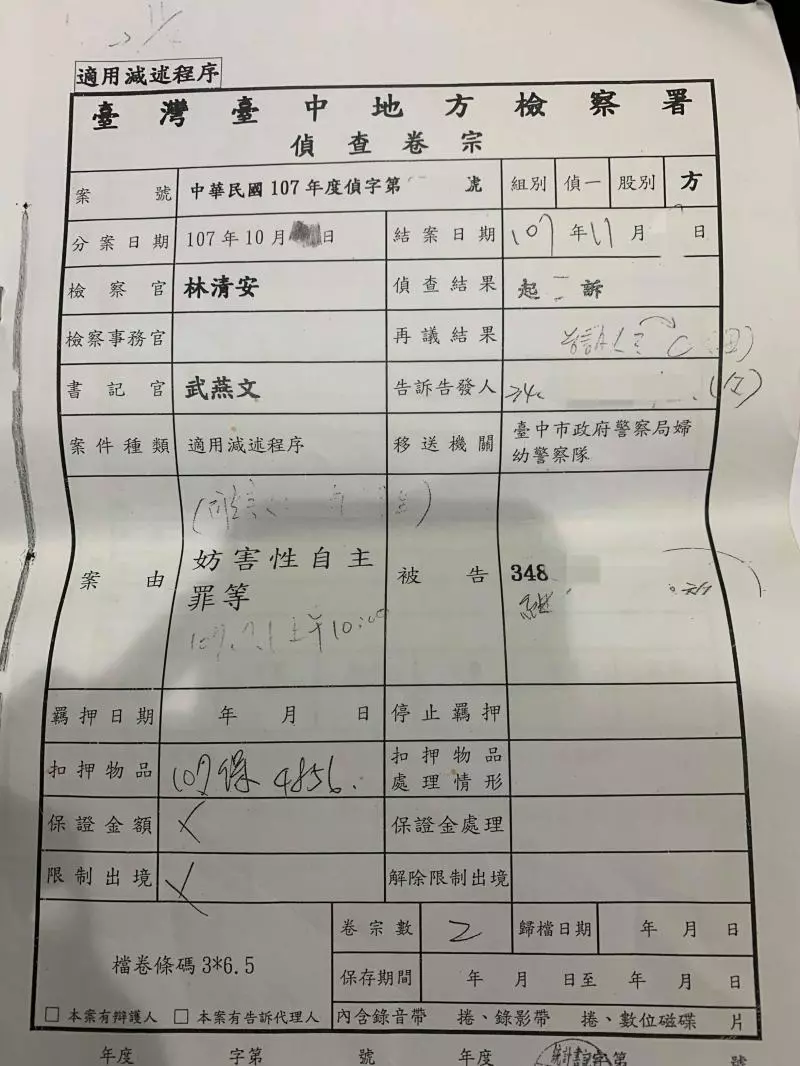 適用減述程序
臺灣臺中地方檢察署
偵查卷宗
案號 中華民國107年度偵字第 號 組別 偵一 股別 方
分案日期 107年10月 日 結案日期 107年11月 日
檢察官 林清安 偵查結果 起訴
檢察事務官 再議結果
書記官 武燕文 告訴告發人
案件種類 適用減述程序 移送機關 臺中市政府警察局婦
幼警察隊
案由 妨害性自主
罪等
被告 348
羈押日期 年 月 日 停止羈押
扣押物品 107保4856. 扣押物品
處理情形
保證金額 保證金處理
限制出境 解除限制出境
檔卷條碼3*6.5
卷宗數 2 歸檔日期 年 月 日
保存期間 年 月 日至 年 月 日
□ 本案有辯護人 □ 本案有告訴代理人 內含錄音帶 捲、錄影帶 捲、數位磁碟 片
年度 字第 號 年度 字第 號